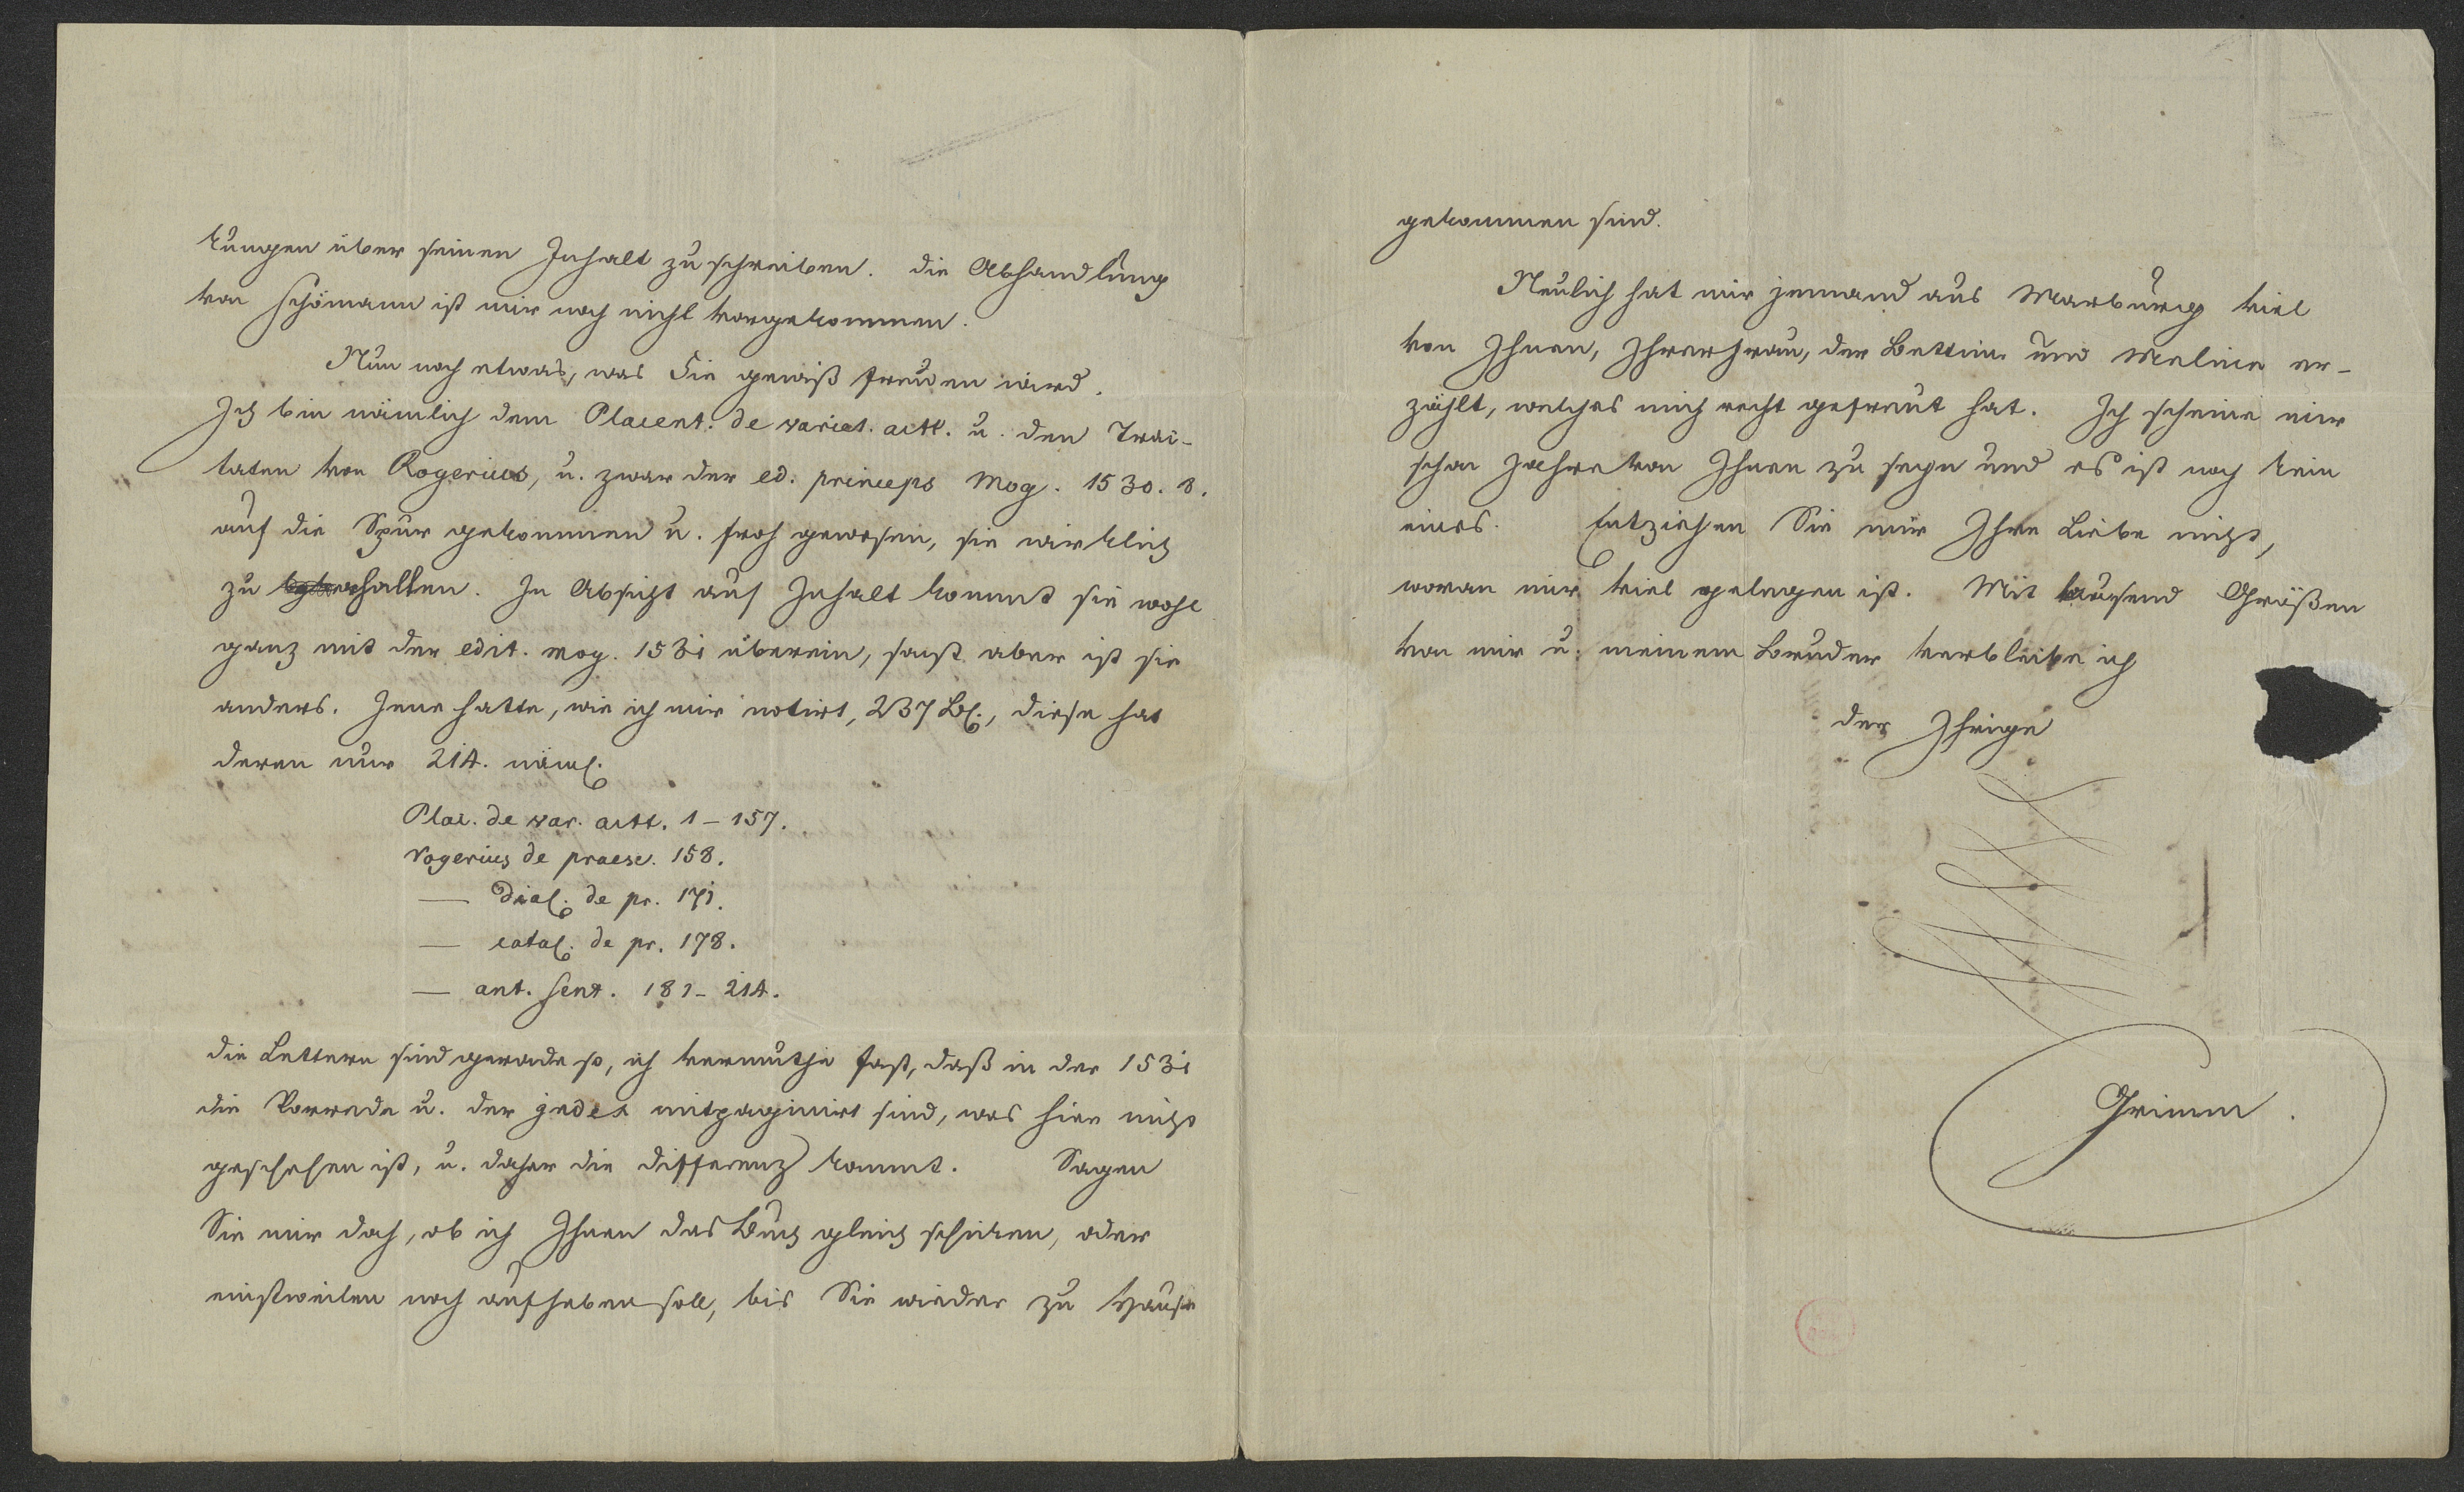 kungen über seinen Inhalt zu schreiben. die Abhandlung
von Schömann ist mir noch nicht vorgekommen.
Nun noch etwas, was Sie gewiß freuen wird.
Ich bin nämlich dem Placent. de variet. actt. u. den Trac-
taten von Rogerius, u. zwar der ed. princeps Mog. 1530. 8.
auf die Spur gekommen u. froh gewesen, sie wirklich
zu erhalten. In Absicht auf Inhalt kommt sie wohl
ganz mit der edit. mog. 1531 überein, sonst aber ist sie
anders. Jene hatte, wie ich mir notirt, 237 Bl., diese hat
deren nur 214. näml.
Plac. de var. actt. 1 – 157.
rogerius de praesc. 158.
— dial. de pr. 171.
— catal. de pr. 178.
— ant. sent. 181 – 214.
die Lettern sind gerade so, ich vermuthe fast, daß in der 1531
die Vorrede u. der index mitpaginirt sind, was hier nicht
geschehen ist, u. daher die differenz kommt. Sagen
Sie mir doch, ob ich Ihnen das Buch gleich schicken, oder
einstweilen noch aufheben soll, bis Sie wieder zu Hause
gekommen sind.
Neulich hat mir jemand aus Marburg viel
von Ihnen, Ihrer Frau, der Bettine und Meline er-
zählt, welches mich recht gefreut hat. Ich scheine mir
schon Jahre von Ihnen zu seyn und es ist noch kein
eines. Entziehen Sie mir Ihre Liebe nicht,
woran mir viel gelegen ist. Mit tausend Grüßen
von mir u. meinem Bruder verbleibe ich
der Ihrige
Grimm.